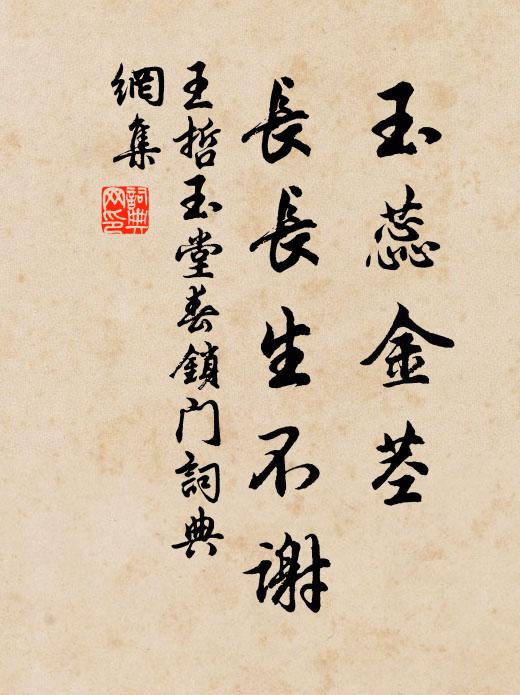 玉蕊金茎
長長生不謝
王哲玉堂春鎖門詞典
網集
詞典
网印